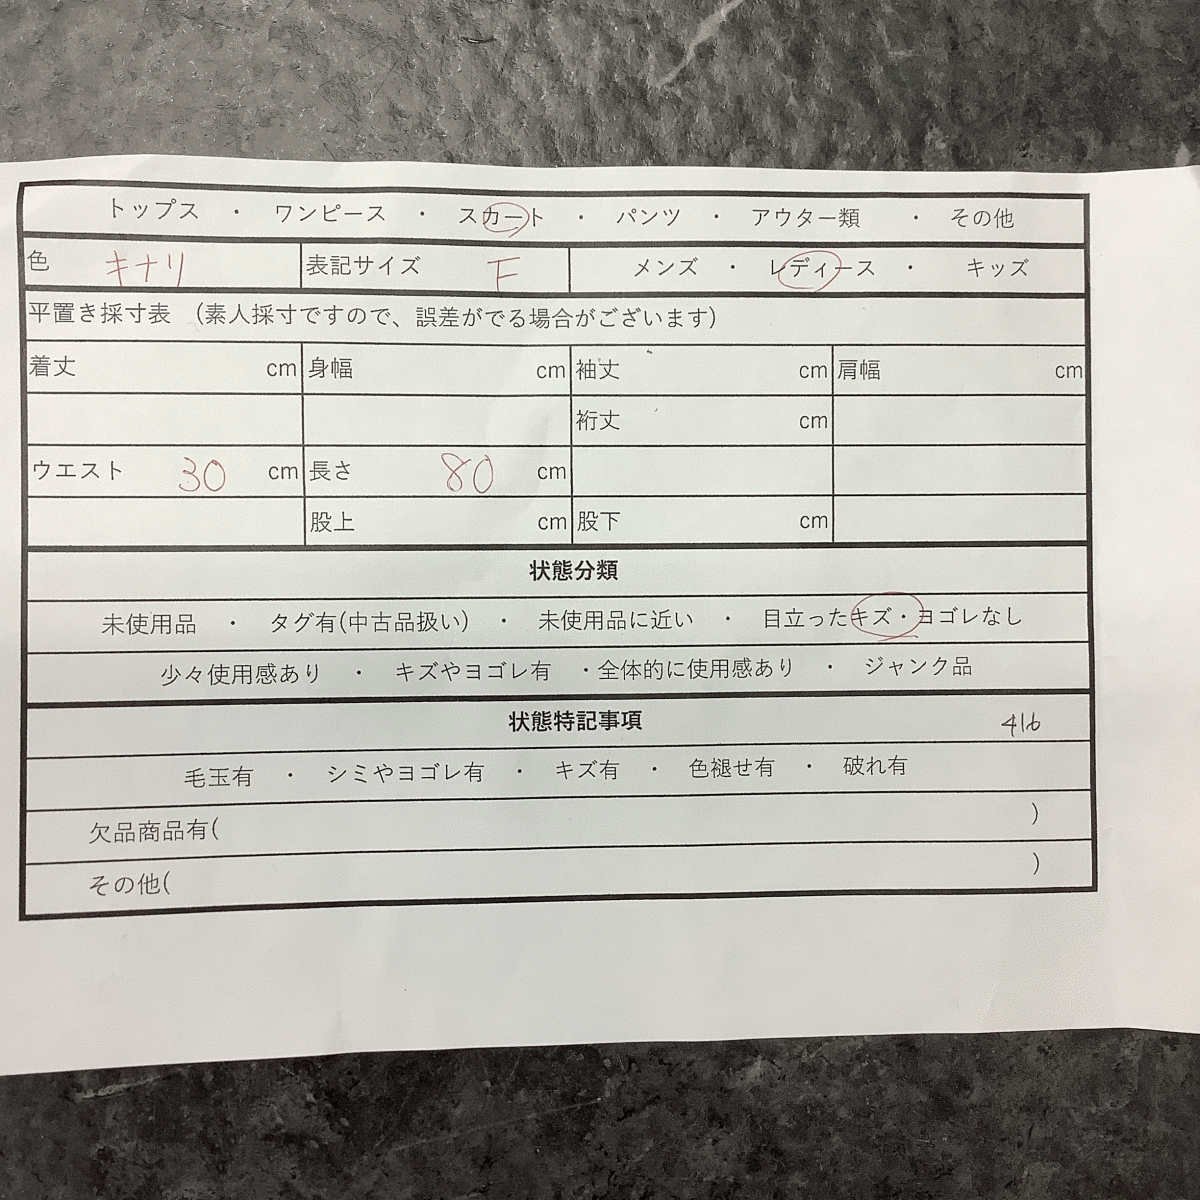 トップス ・ ワンピース ・ スカート ・ パンツ ・ アウター類 ・ その他
色 キナリ 表記サイズ F メンズ ・ レディース ・ キッズ
平置き採寸表 (素人採寸ですので、誤差がでる場合がございます)
着丈 cm 身幅 cm 袖丈 cm 肩幅 cm
裄丈 cm
ウエスト 30 cm 長さ 80 cm
股上 cm 股下 cm
状態分類
未使用品 ・ タグ有(中古品扱い) ・ 未使用品に近い ・ 目立ったキズ・ヨゴレなし
少々使用感あり ・ キズやヨゴレ有 ・全体的に使用感あり ・ ジャンク品
状態特記事項 416
毛玉有 ・ シミやヨゴレ有 ・ キズ有 ・ 色褪せ有 ・ 破れ有
欠品商品有( )
その他( )